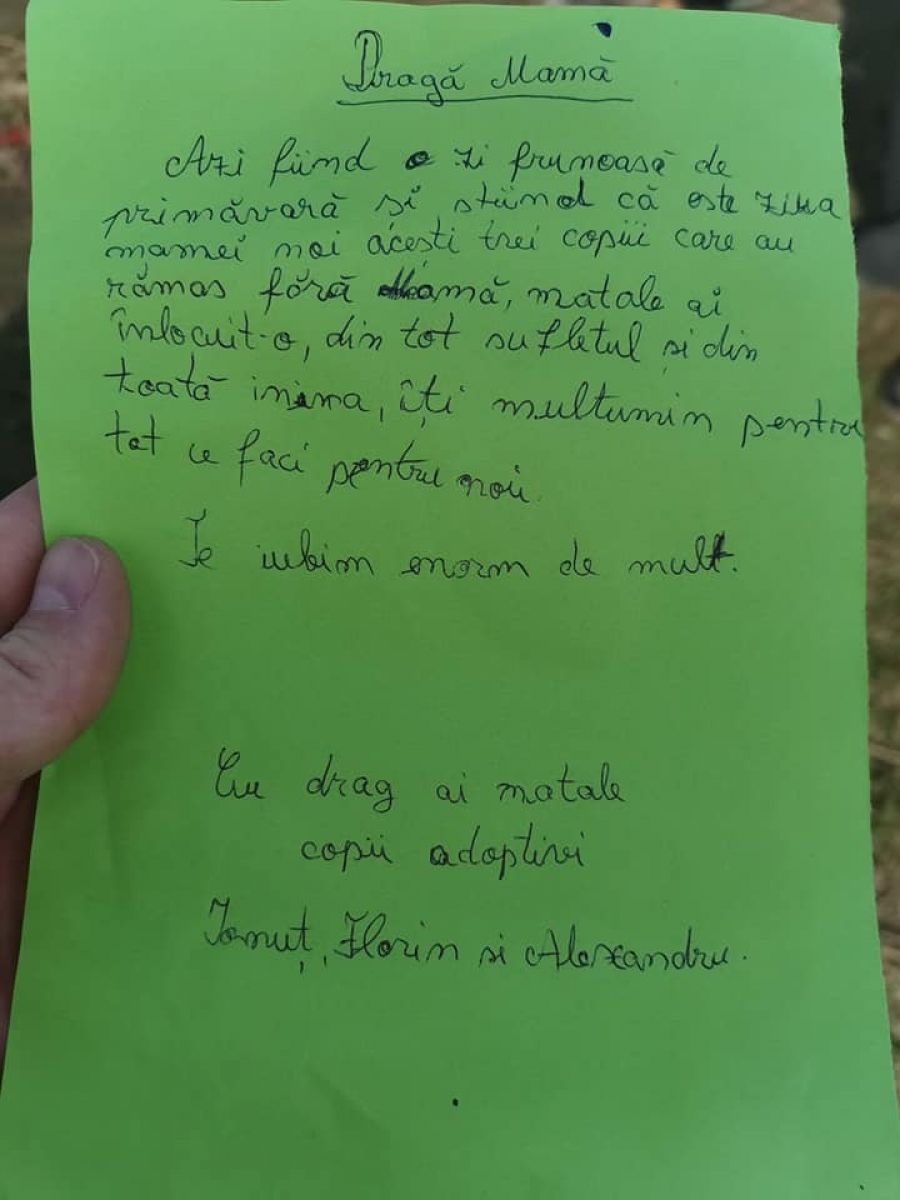 Dragă Mamă
Azi fiind o zi frumoasă de
primăvară și stiind că este ziua
mamei noi acești trei copii care au
rămas fără Mamă, matale ai
înlocuit-o, din tot sufletul și din
toată inima, îți multumim pentru
tot ce faci pentru noi.
Te iubim enorm de mult.
Cu drag ai matale
copii adoptivi
Ionuț, Florin si Alexandru.